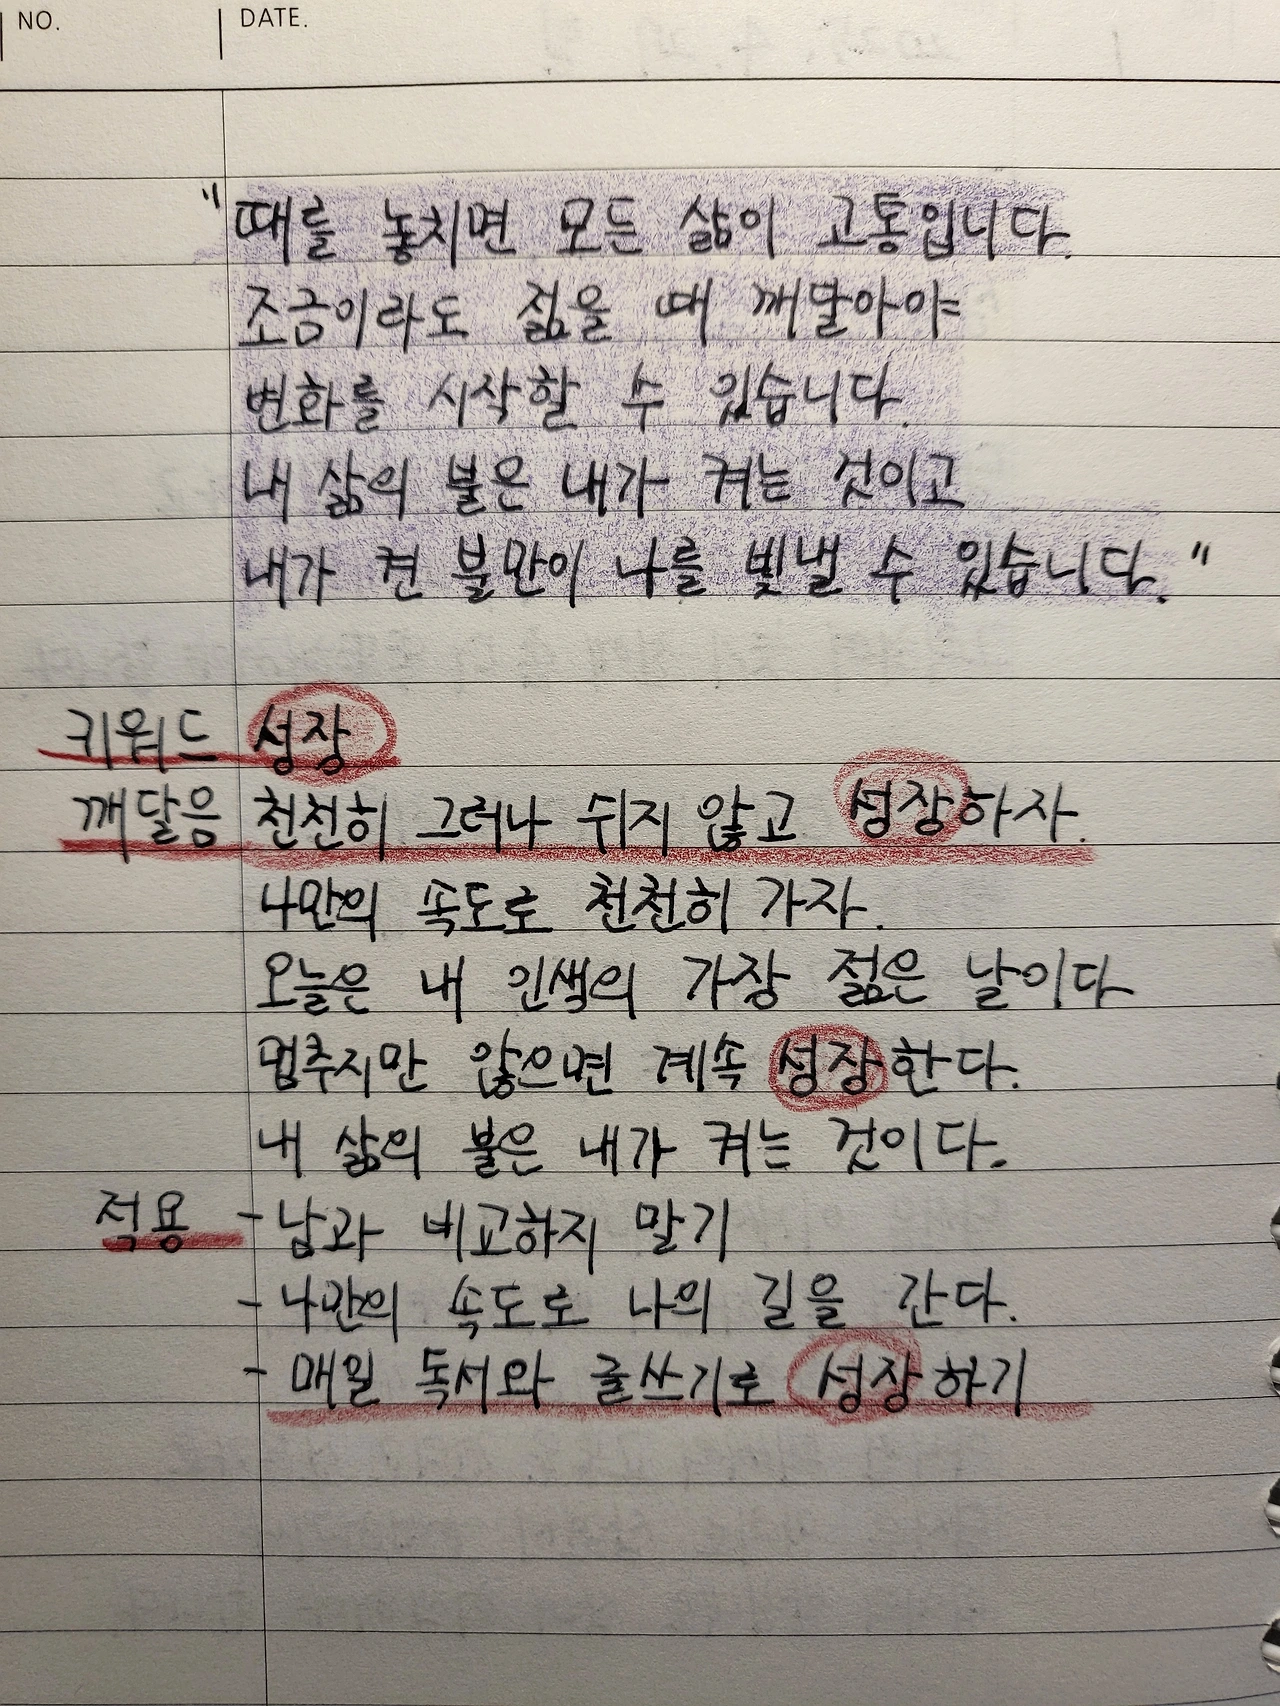 NO. DATE.
"때를 놓치면 모든 삶이 고통입니다.
조금이라도 젊을 때 깨달아야
변화를 시작할 수 있습니다.
내 삶의 불은 내가 켜는 것이고
내가 켠 불만이 나를 빛낼 수 있습니다."
키워드 성장
깨달음 천천히 그러나 쉬지 않고 성장하자.
나만의 속도로 천천히 가자.
오늘은 내 인생의 가장 젊은 날이다
멈추지만 않으면 계속 성장한다.
내 삶의 불은 내가 켜는 것이다.
적용 - 남과 비교하지 말기
- 나만의 속도로 나의 길을 간다.
- 매일 독서와 글쓰기로 성장하기